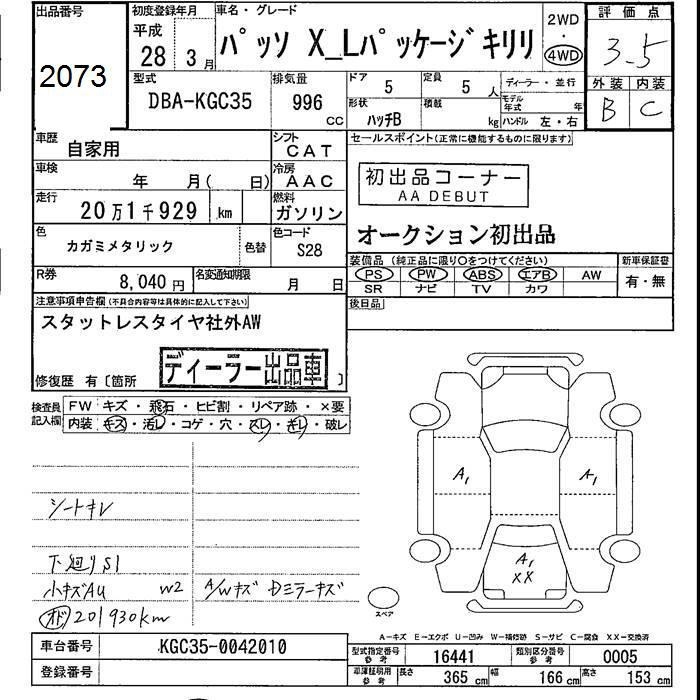 出品番号
2073
初度登録年月
平成
28年 3月
車名・グレード
パッソ X_Lパッケージ キリリ
2WD
・
4WD
評価点
3.5
型式
DBA-KGC35
排気量
996
CC
ドア
5
定員
5人
ディーラー・並行
形状
ハッチB
積載
kg
モデル年式
年
ハンドル 左・右
外装 内装
B C
車歴
自家用
シフト
CAT
セールスポイント(正常に機能するものに限ります)
車検
年 月( 日)
冷房
AAC
初出品コーナー
AA DEBUT
走行
20万1千929 km
燃料
ガソリン
オークション初出品
色
カガミメタリック
色替
色コード
S28
装備品(純正品に限り○をつけてください)
新車保証書
PS PW ABS エアB AW
有・無
SR ナビ TV カワ
R券
8,040円
名変通知期限
月 日
後日品
注意事項申告欄(不具合内容等は具体的に記入して下さい)
スタットレスタイヤ社外AW
ディーラー出品車
修復歴 有〔箇所 〕
検査員記入欄
FW キズ・飛石・ヒビ割・リペア跡・×要
内装 キズ・汚レ・コゲ・穴・スレ・キレ・破レ
シートキレ
下廻りS1
小キズAU W2 A/Wキズ Dミラーキズ
オド 201930km
A1
A1
A1
XX
スペア
A―キズ E―エクボ U―凹み W―補修跡 S―サビ C―腐食 XX―交換済
車台番号
KGC35-0042010
型式指定番号 参考
16441
類別区分番号 参考
0005
登録番号
車庫証明用 参考
長さ
365 cm
幅
166 cm
高さ
153 cm